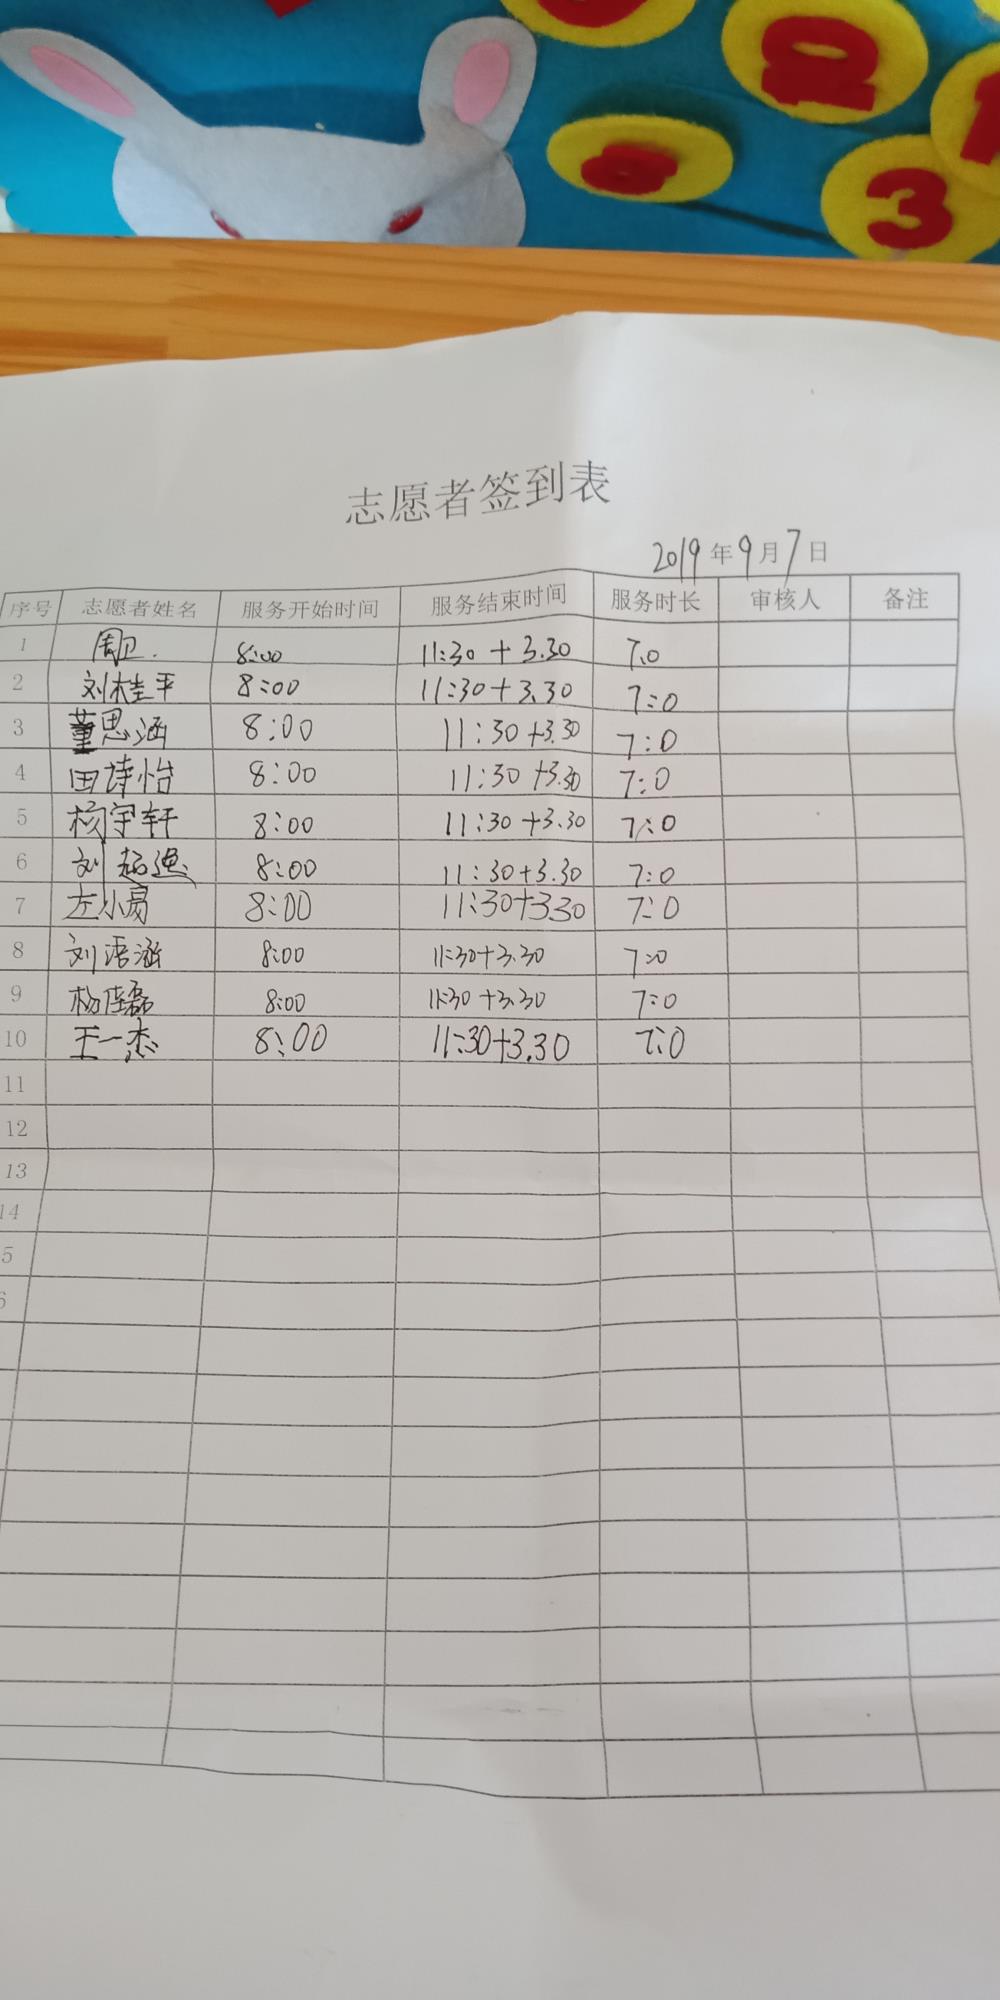 3
志愿者签到表
2019年9月7日
序号 志愿者姓名 服务开始时间 服务结束时间 服务时长 审核人 备注
1 周卫. 8:00 11:30 + 3.30 7.0
2 刘桂平 8:00 11:30+3.30 7:0
3 董思涵 8:00 11:30+3.30 7:0
4 田诗怡 8:00 11:30+3.30 7:0
5 杨宇轩 8:00 11:30+3.30 7:0
6 刘 8:00 11:30+3.30 7:0
7 左小易 8:00 11:30+3.30 7:0
8 刘语涵 8:00 11:30+3.30 7:0
9 杨佳磊 8:00 11:30+3.30 7:0
10 王一杰 8:00 11:30+3.30 7:0
11
12
13
14
5
6